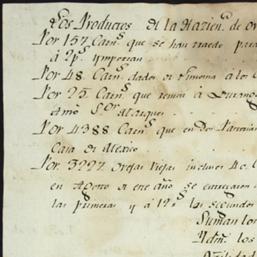 Los Productos de la Hazien.ª de ov
Por 157 Carn.s que se han traido para
à 2p.s ymportan
Por 48 Carn.s dados de limosna à los
Por 25 Carn.s que remiti à Durango
Amo S.or Marques
Por 4388 Carn.s que en dos Partidas
Casa de Mexico
Por 3227 Ovejas Viejas inclusas 40 C
en Agosto de este año se entregaron
las primeras y à 12 r.s las segundas
Suman los
Ydm. los